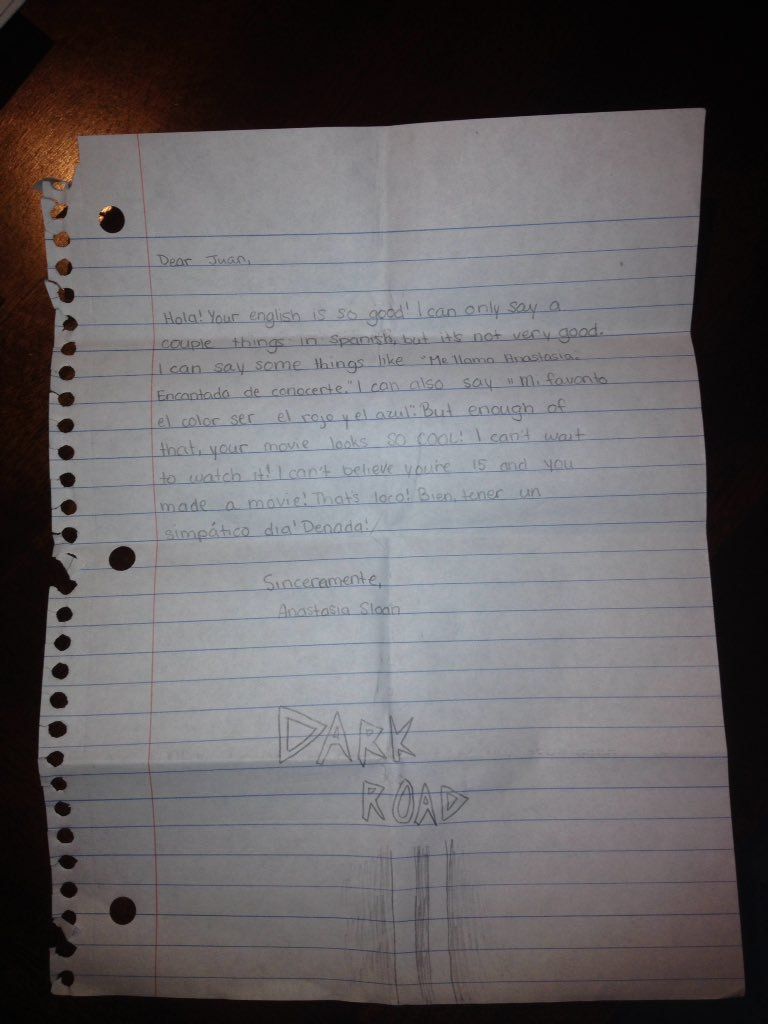 Dear Juan,
Hola! Your english is so good! I can only say a
couple things in Spanish, but it's not very good.
I can say some things like "Me llamo Anastasia.
Encantada de conocerte." I can also say "Mi favorito
el color ser el rojo y el azul." But enough of
that, your movie looks SO COOL! I can't wait
to watch it! I can't believe you're 15 and you
made a movie! That's loco! Bien, tener un
simpático dia! Denada!
Sinceramente,
Anastasia Sloan
DARK
ROAD